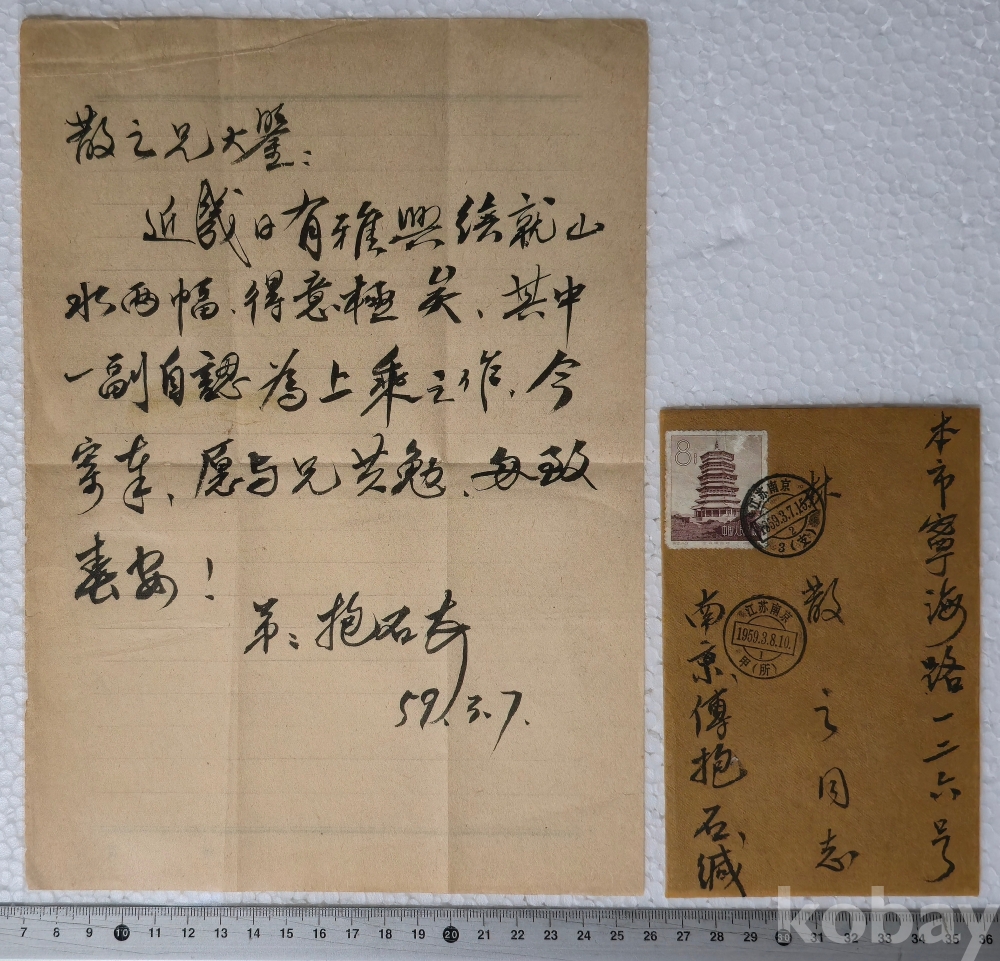 散之兄大鑒：
近幾日有雅興續就山
水两幅、得意極矣、其中
一副自認為上乘之作、今
寄奉、愿与兄共勉、每致
春安！
弟：抱石書
59.3.7.
本市寧海路一二六号
林散之同志
南京、傅抱石、缄
8分
江苏南京
1959.3.7.15
2
3(支)
江苏南京
1959.3.8.10.
1
甲(所)
7 8 9 10 11 12 13 14 15 16 17 18 19 20 21 22 23 24 25 26 27 28 29 30 31 32 33 34 35 36
kobay